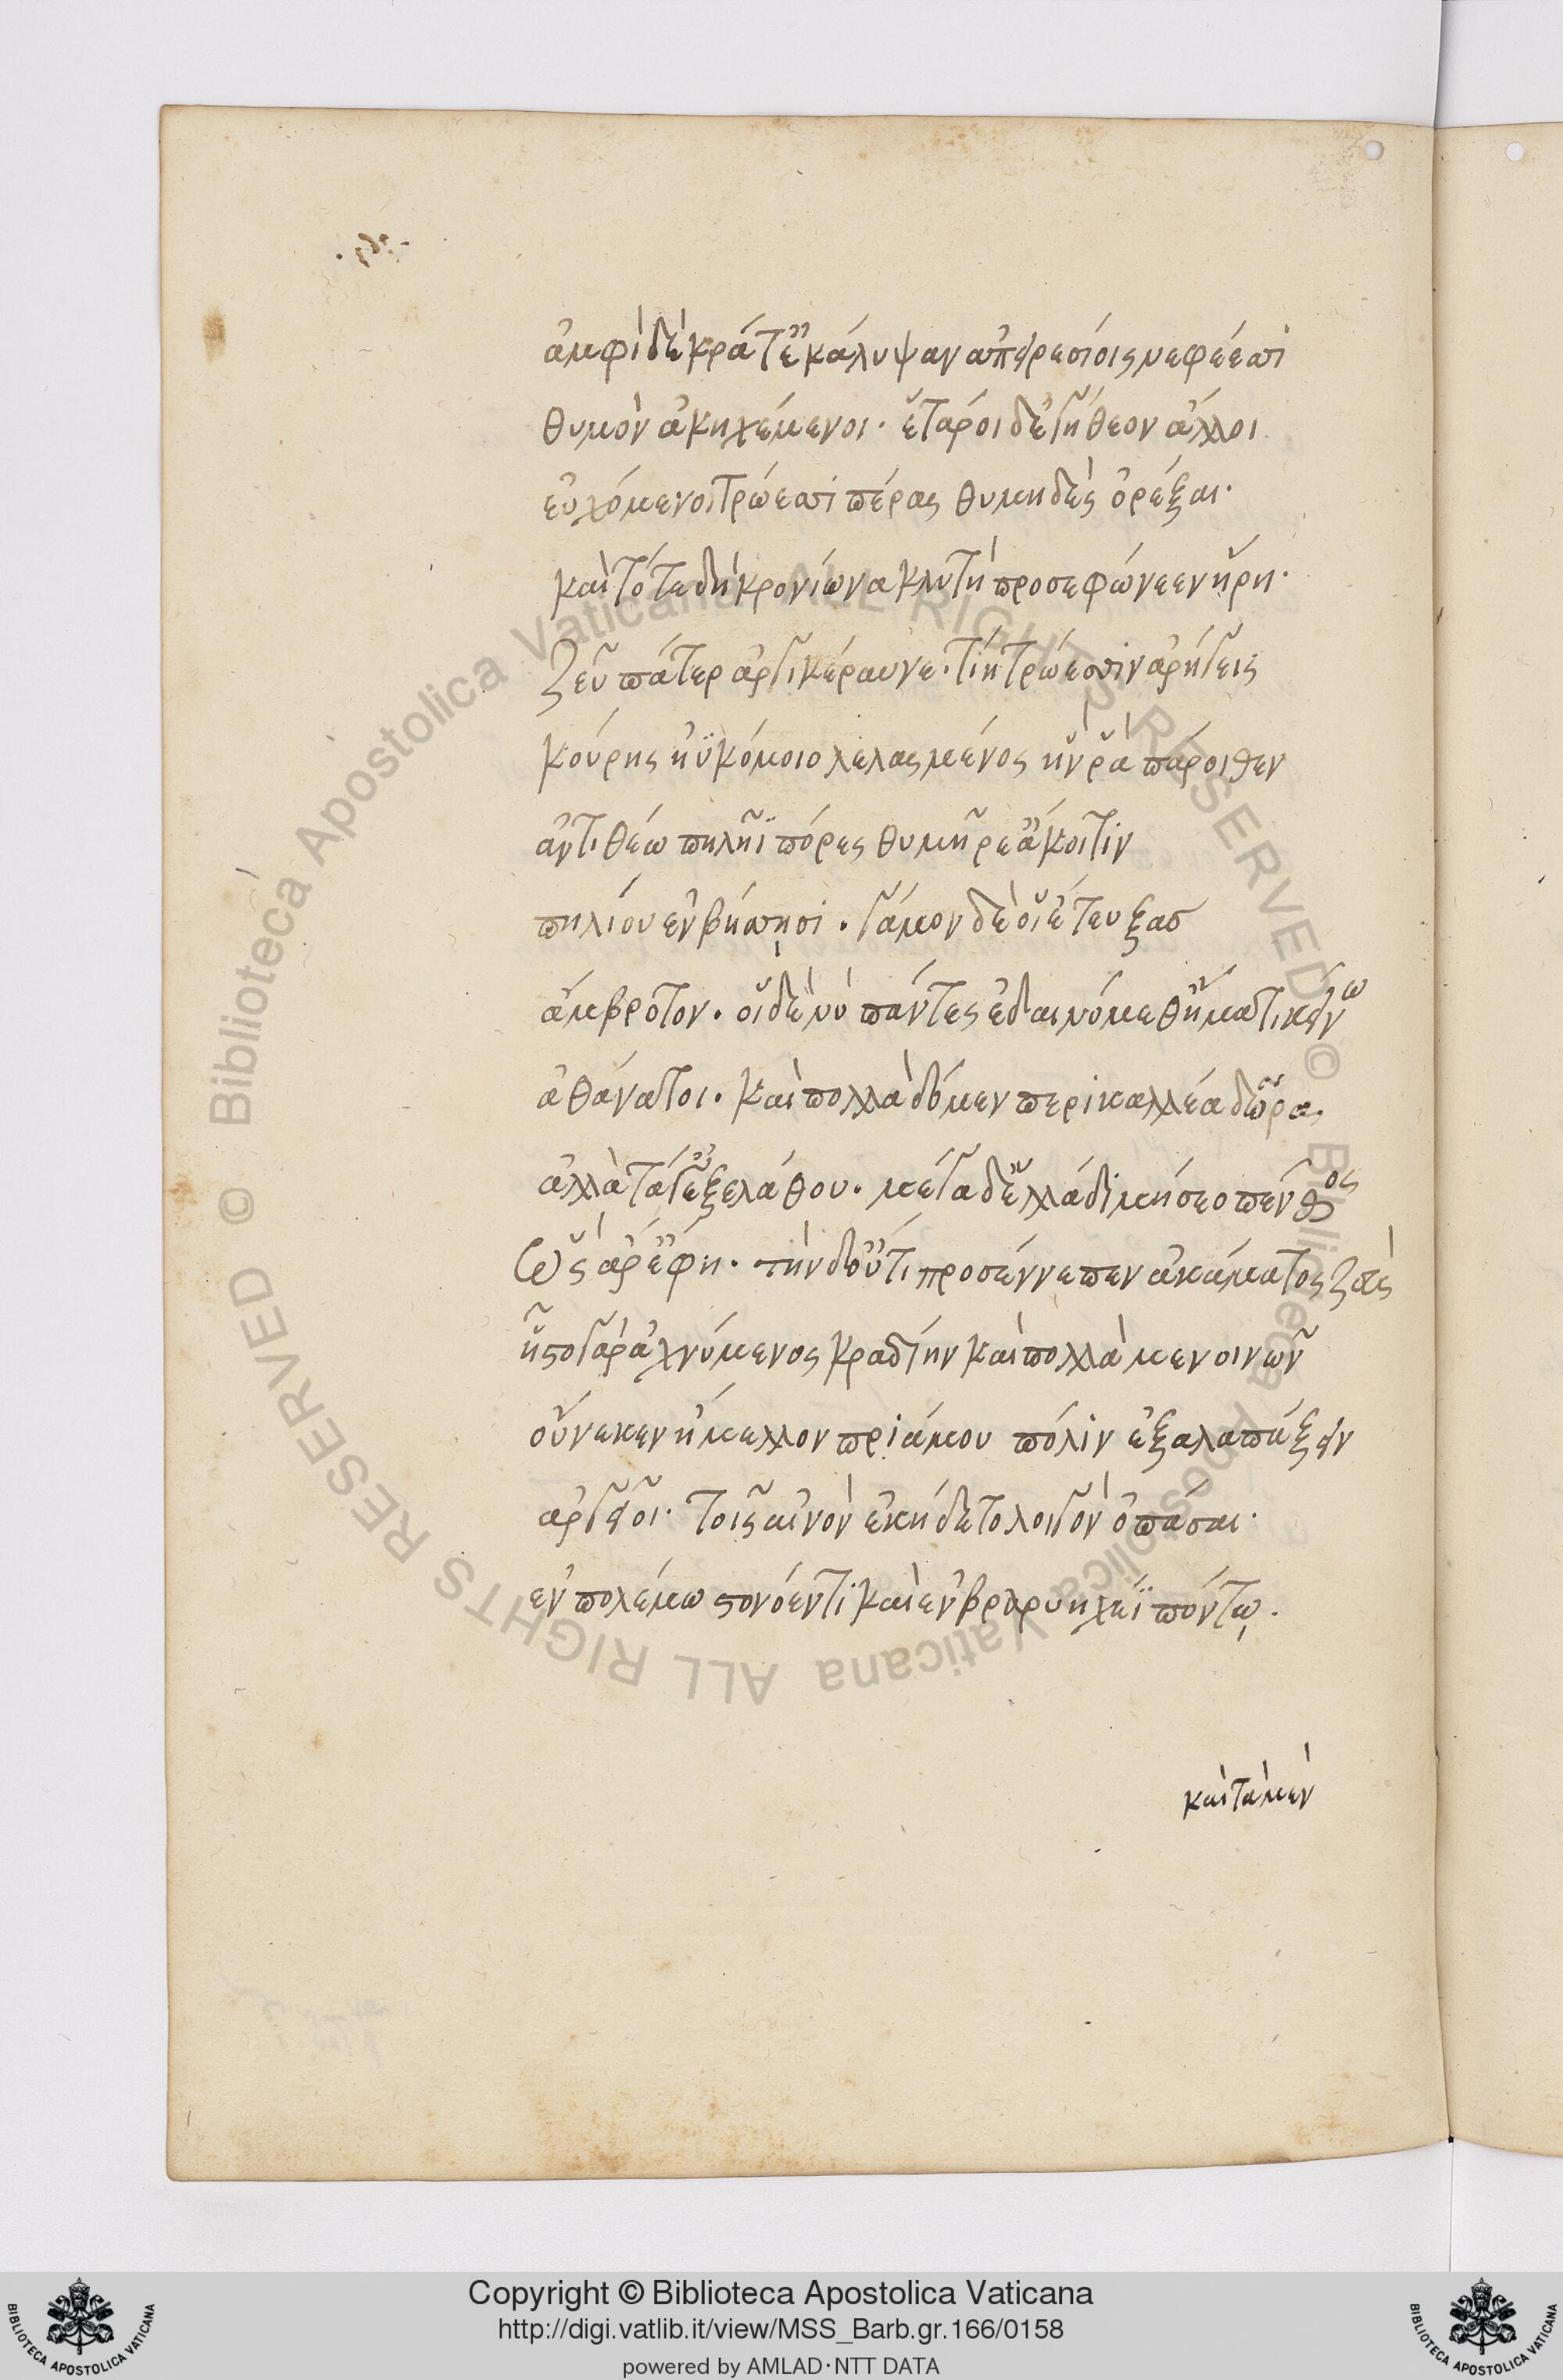 ἀμφὶ δὲ κρᾶτ' ἐκάλυψαν ἀπειρεσίοις νεφέεσι
θυμὸν ἀκηχέμενοι. ἕταροι δὲ γήθεον ἄλλοι
εὐχόμενοι τρώεσι πέρας θυμηδὲς ὀρέξαι.
καὶ τότε δὴ κρονίωνα κλυτὴ προσεφώνεεν ἥρη.
ζεῦ πάτερ ἀργικέραυνε. τίη τρώεσσιν ἀρήγεις
κούρης ἠϋκόμοιο λελασμένος ἥν ῥα πάροιθεν
ἀντιθέω πηλῆϊ πόρες θυμῆρε ἄκοιτιν
πηλίου ἐν βήσσῃσι. γάμον δέ οἱ ἔτευξας
ἄμβροτον. οἱ δέ νυ πάντες ἐδαινύμεθ' ἤματι κείνω
ἀθάνατοι. καὶ πολλὰ δόμεν περικαλλέα δῶρα.
ἀλλὰ τάγ' ἐξελάθου. μέγα δ' ἑλλάδι μήσεο πένθος
Ὣς ἄρ' ἔφη. τὴν δ' οὔτι προσέννεπεν ἀκάματος ζεὺς
ἧστο γὰρ ἀχνύμενος κραδίην καὶ πολλὰ μενοινῶν
οὕνεκεν ἤμελλον πριάμου πόλιν ἐξαλαπάξειν
ἀργεῖοι. τοῖς αἰνὸν ἐκήδετο λοιγὸν ὀπάσαι.
ἐν πολέμω στονόεντι καὶ ἐν βραρυηχέϊ πόντῳ.
καὶ τὰ μὲν
Copyright © Biblioteca Apostolica Vaticana
http://digi.vatlib.it/view/MSS_Barb.gr.166/0158
powered by AMLAD·NTT DATA
BIBLIOTECA APOSTOLICA VATICANA
BIBLIOTECA APOSTOLICA VATICANA
© Biblioteca Apostolica Vaticana ALL RIGHTS RESERVED © Biblioteca Apostolica Vaticana ALL RIGHTS RESERVED